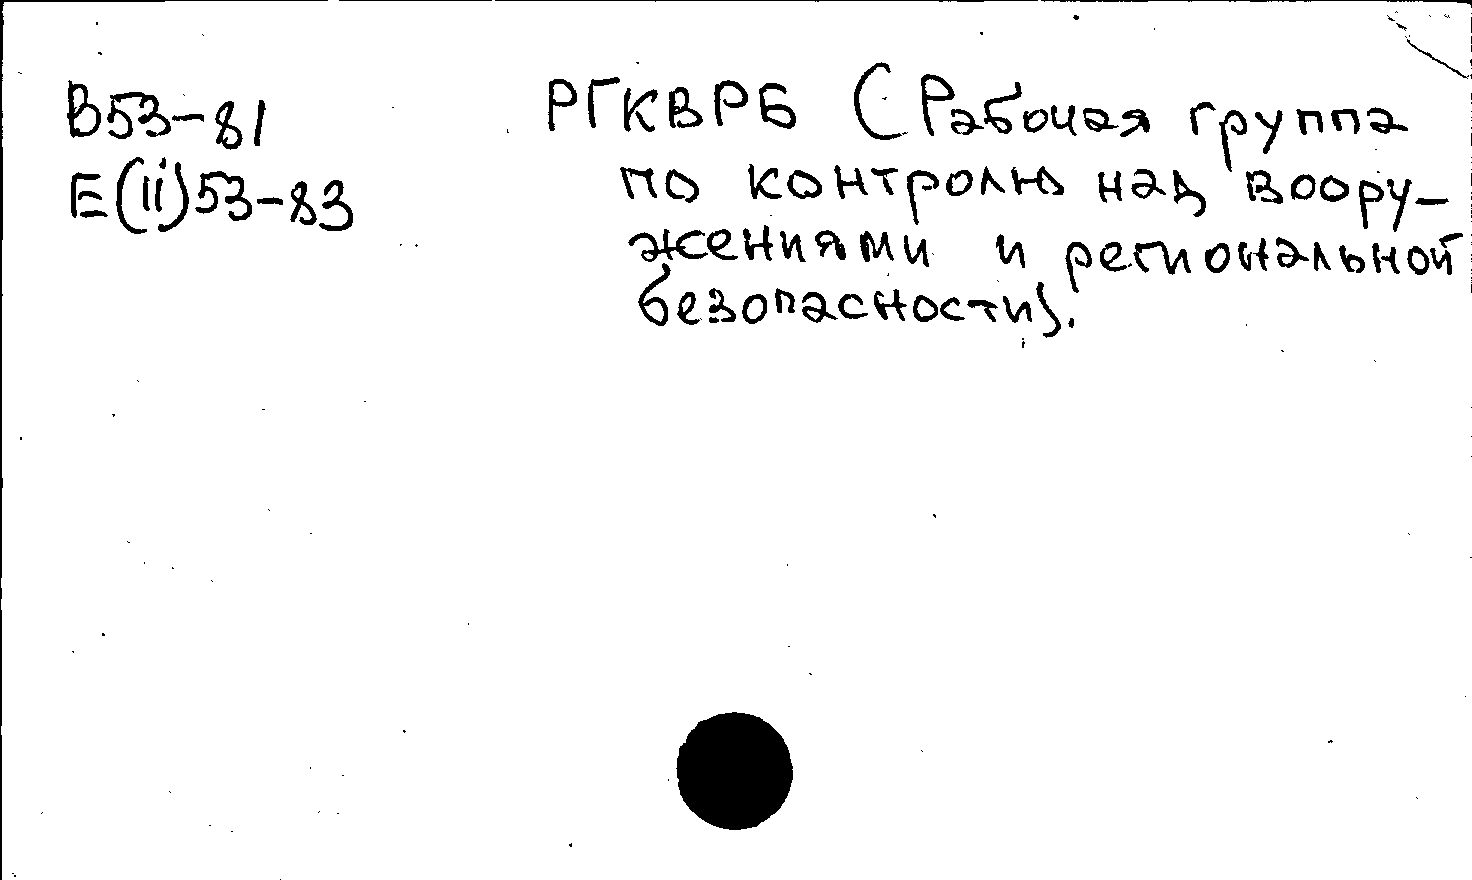 В53-81
Е(ii)53-83
РГКВРБ (Рабочая группа
по контролю над воору-
жениями и региональной
безопасности).